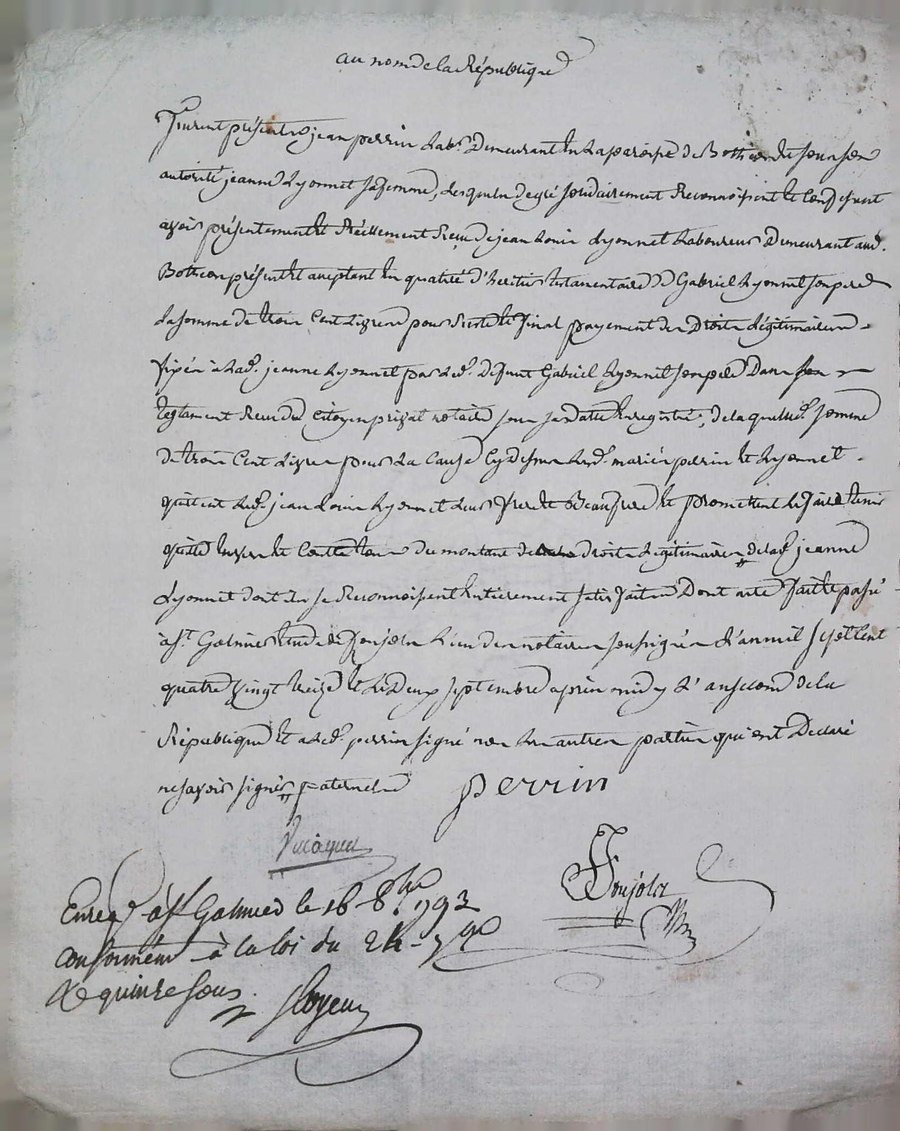 au nom de la République
Furent présents jean perrin lab.r Demeurant en la paroisse de Bothéon et sous son
autorité jeanne Lyonnet sa femme, lesquels de gré solidairement Reconnoissent et Confessent
avoir présentement et Réellement Reçu de jean Louis Lyonnet Laboureur Demeurant aud.
Bothéon présent et acceptant en qualité d'heritier testamentaire de Gabriel Lyonnet son pere
La somme de trois Cent Livres pour Reste et final payement des Droits Légitimaires
fixés à Lad. jeanne Lyonnet par led. Défunt Gabriel Lyonnet son père Dans son
testament Reçu du Citoyen notaire sous sa datte Enregistré, de laquelle somme
de trois Cent Livres pour La Cause Cy dessus Lesd. mariés perrin et Lyonnet
quittent led. jean Louis Lyonnet Leur frere et Beaufrere et promettent Le faire tenir
quitte Envers et Contre tous du montant des droits Légitimaires de lad. jeanne
Lyonnet dont ils se Reconnoissent Entièrement satisfaits Dont acte fait et passé
à S.t Galmier Etude de Lieu des notaires soussignés L'an mil sept Cent
quatre Vingt treize et Le Deux septembre après midy L'an second de la
République et a led. perrin signé non Les autres parties qui ont Déclaré
ne savoir signer paternels
perrin
Enreg. à S.t Galmier le 16 8.bre 1793
conformém.t à la loi du 24 7.bre
R. quinze sous.